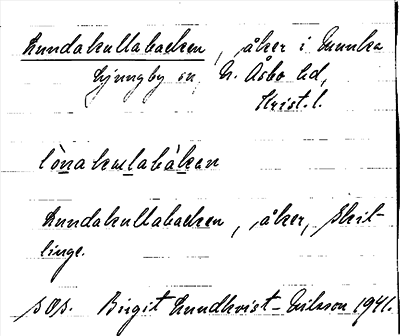 Lundakullabacken, åker i Munka
Ljungby sn, N. Åsbo hd,
Krist. l.
lònakulabàkan
Lundakullabacken, åker, Skil-
linge.
s o s. Birgit Lundkvist-Nilsson 1941.